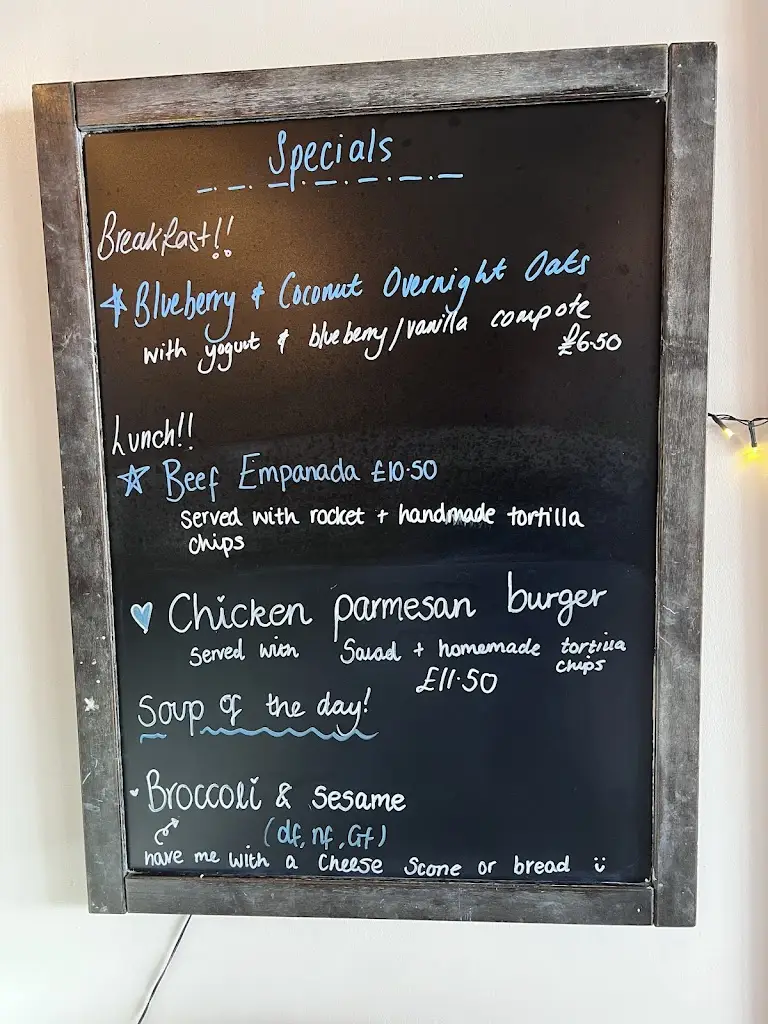 Specials
Breakfast!!
Blueberry & Coconut Overnight Oats
with yogurt & blueberry/vanilla compote
£6.50
Lunch!!
Beef Empanada £10.50
served with rocket + handmade tortilla
chips
Chicken parmesan burger
served with Salad + homemade tortilla
chips
£11.50
Soup of the day!
Broccoli & sesame
(df, nf, Gf)
have me with a cheese scone or bread ü